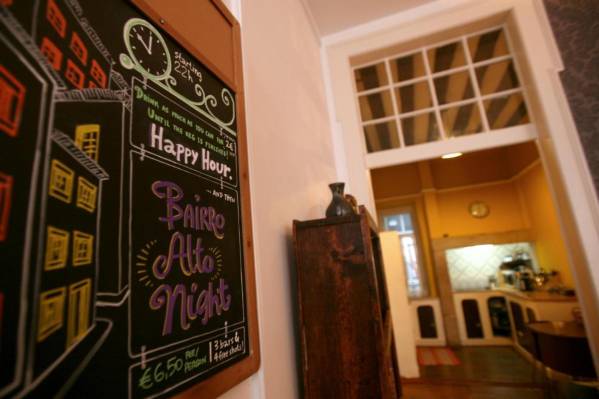 starting
22h
Drink as much as you can for
until the keg is finished!
Happy Hour.
...and then
Bairro
Alto
Night
€6,50 per/
person
3 bars &
4 free shots!